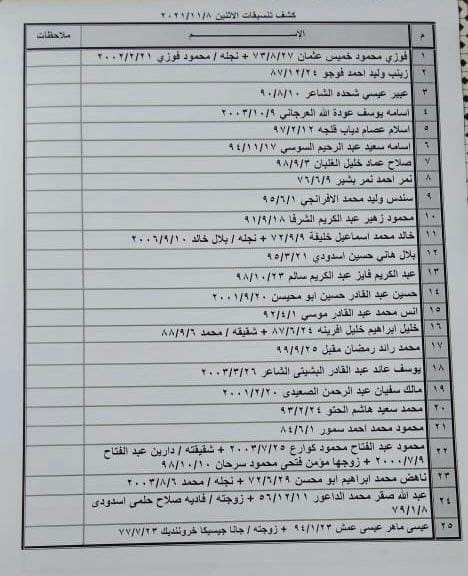 كشف تنسيقات الاثنين ٢٠٢١/١١/٨
م الاسم ملاحظات
١ فوزي محمود خميس عثمان ٧٣/٨/٢٧ + نجله / محمود فوزي ٢٠٠٢/٢/٢١
٢ زينب وليد احمد فوجو ٨٧/١٢/٢٤
٣ عبير عيسي شحده الشاعر ٩٠/٨/١٠
٤ اسامه يوسف عودة الله العرجاني ٢٠٠٣/١٠/٩
٥ اسلام عصام دياب قلجه ٩٧/٢/١٢
٦ اسامه سعيد عبد الرحيم السوسي ٩٤/١١/١٧
٧ صلاح عماد خليل الغلبان ٩٨/٩/٣
٨ نمر احمد نمر بشير ٧٦/٦/٩
٩ سندس وليد محمد الافرانجي ٩٥/٦/١
١٠ محمود زهير عبد الكريم الشرفا ٩١/٩/١٨
١١ خالد محمد اسماعيل خليفة ٧٢/٩/٩ + نجله / بلال خالد ٢٠٠٦/٩/١٠
١٢ بلال هاني حسين اسدودي ٩٥/٣/٢١
١٣ عبد الكريم فايز عبد الكريم سالم ٩٨/١٠/٢٣
١٤ حسين عبد القادر حسين ابو محيسن ٢٠٠١/٩/٢٠
١٥ انس محمد عبد القادر موسي ٩٢/٤/١
١٦ خليل ابراهيم خليل افرينه ٨٧/٦/٢٤ + شقيقه / محمد ٨٨/٩/٦
١٧ محمد رائد رمضان مقبل ٩٩/٩/٢٥
١٨ يوسف عائد عبد القادر البشيتي الشاعر ٢٠٠٣/٣/٢٦
١٩ مالك سفيان عبد الرحمن الصعيدى ٢٠٠١/٢/٢٠
٢٠ محمد سعيد هاشم الحتو ٩٣/٢/٢٤
٢١ محمود محمد احمد سمور ٨٤/٦/١
٢٢ محمود عبد الفتاح محمود كوارع ٢٠٠٣/٧/٢٥ + شقيقته / دارين عبد الفتاح
٢٠٠٠/٧/٩ + زوجها مؤمن فتحى محمود سرحان ٩٨/١٠/١٠
٢٣ ناهض محمد ابراهيم ابو محسن ٧٢/٦/٢٩ + نجله / محمد ٢٠٠٣/٨/٦
٢٤ عبد الله صقر محمد الداعور ٥٦/١٢/١١ + زوجته / فاديه صلاح حلمى اسدودى
٧٩/١/٨
٢٥ عيسى ماهر عيسى عمش ٩٤/١/٢٣ + زوجته / جانا جيسيكا خرونديك ٧٧/٧/٢٣